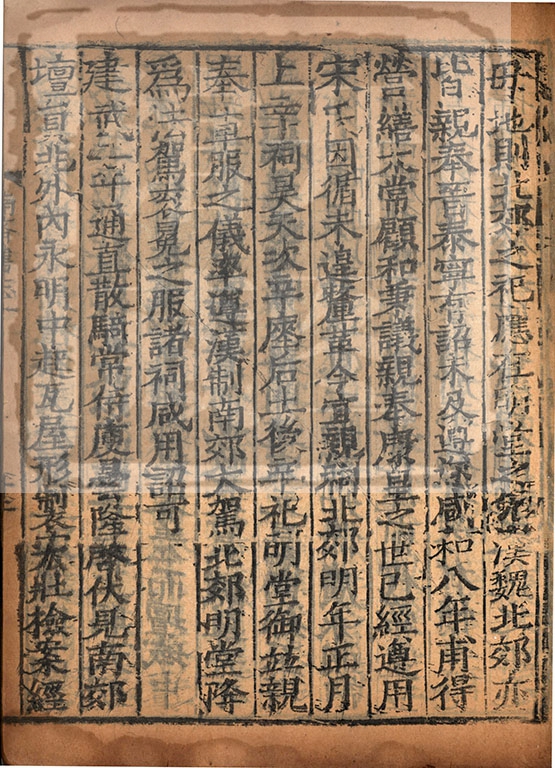 母地則北郊之祀應在明堂之先漢魏北郊亦
皆親奉晉泰寧有詔未及遵遂咸和八年甫得
營繕太常顧和秉議親奉康皇之世已經遵用
宋氏因循未遑釐革今宜親祠北郊明年正月
上辛祠昊天次辛座后土後辛祀明堂御並親
奉車服之儀率遵漢制南郊大駕北郊明堂降
爲法駕袞冕之服諸祠咸用詔可
建武二年通直散騎常侍庾曇隆啓伏見南郊
壇員兆外內永明中起瓦屋形製宏壯檢案經